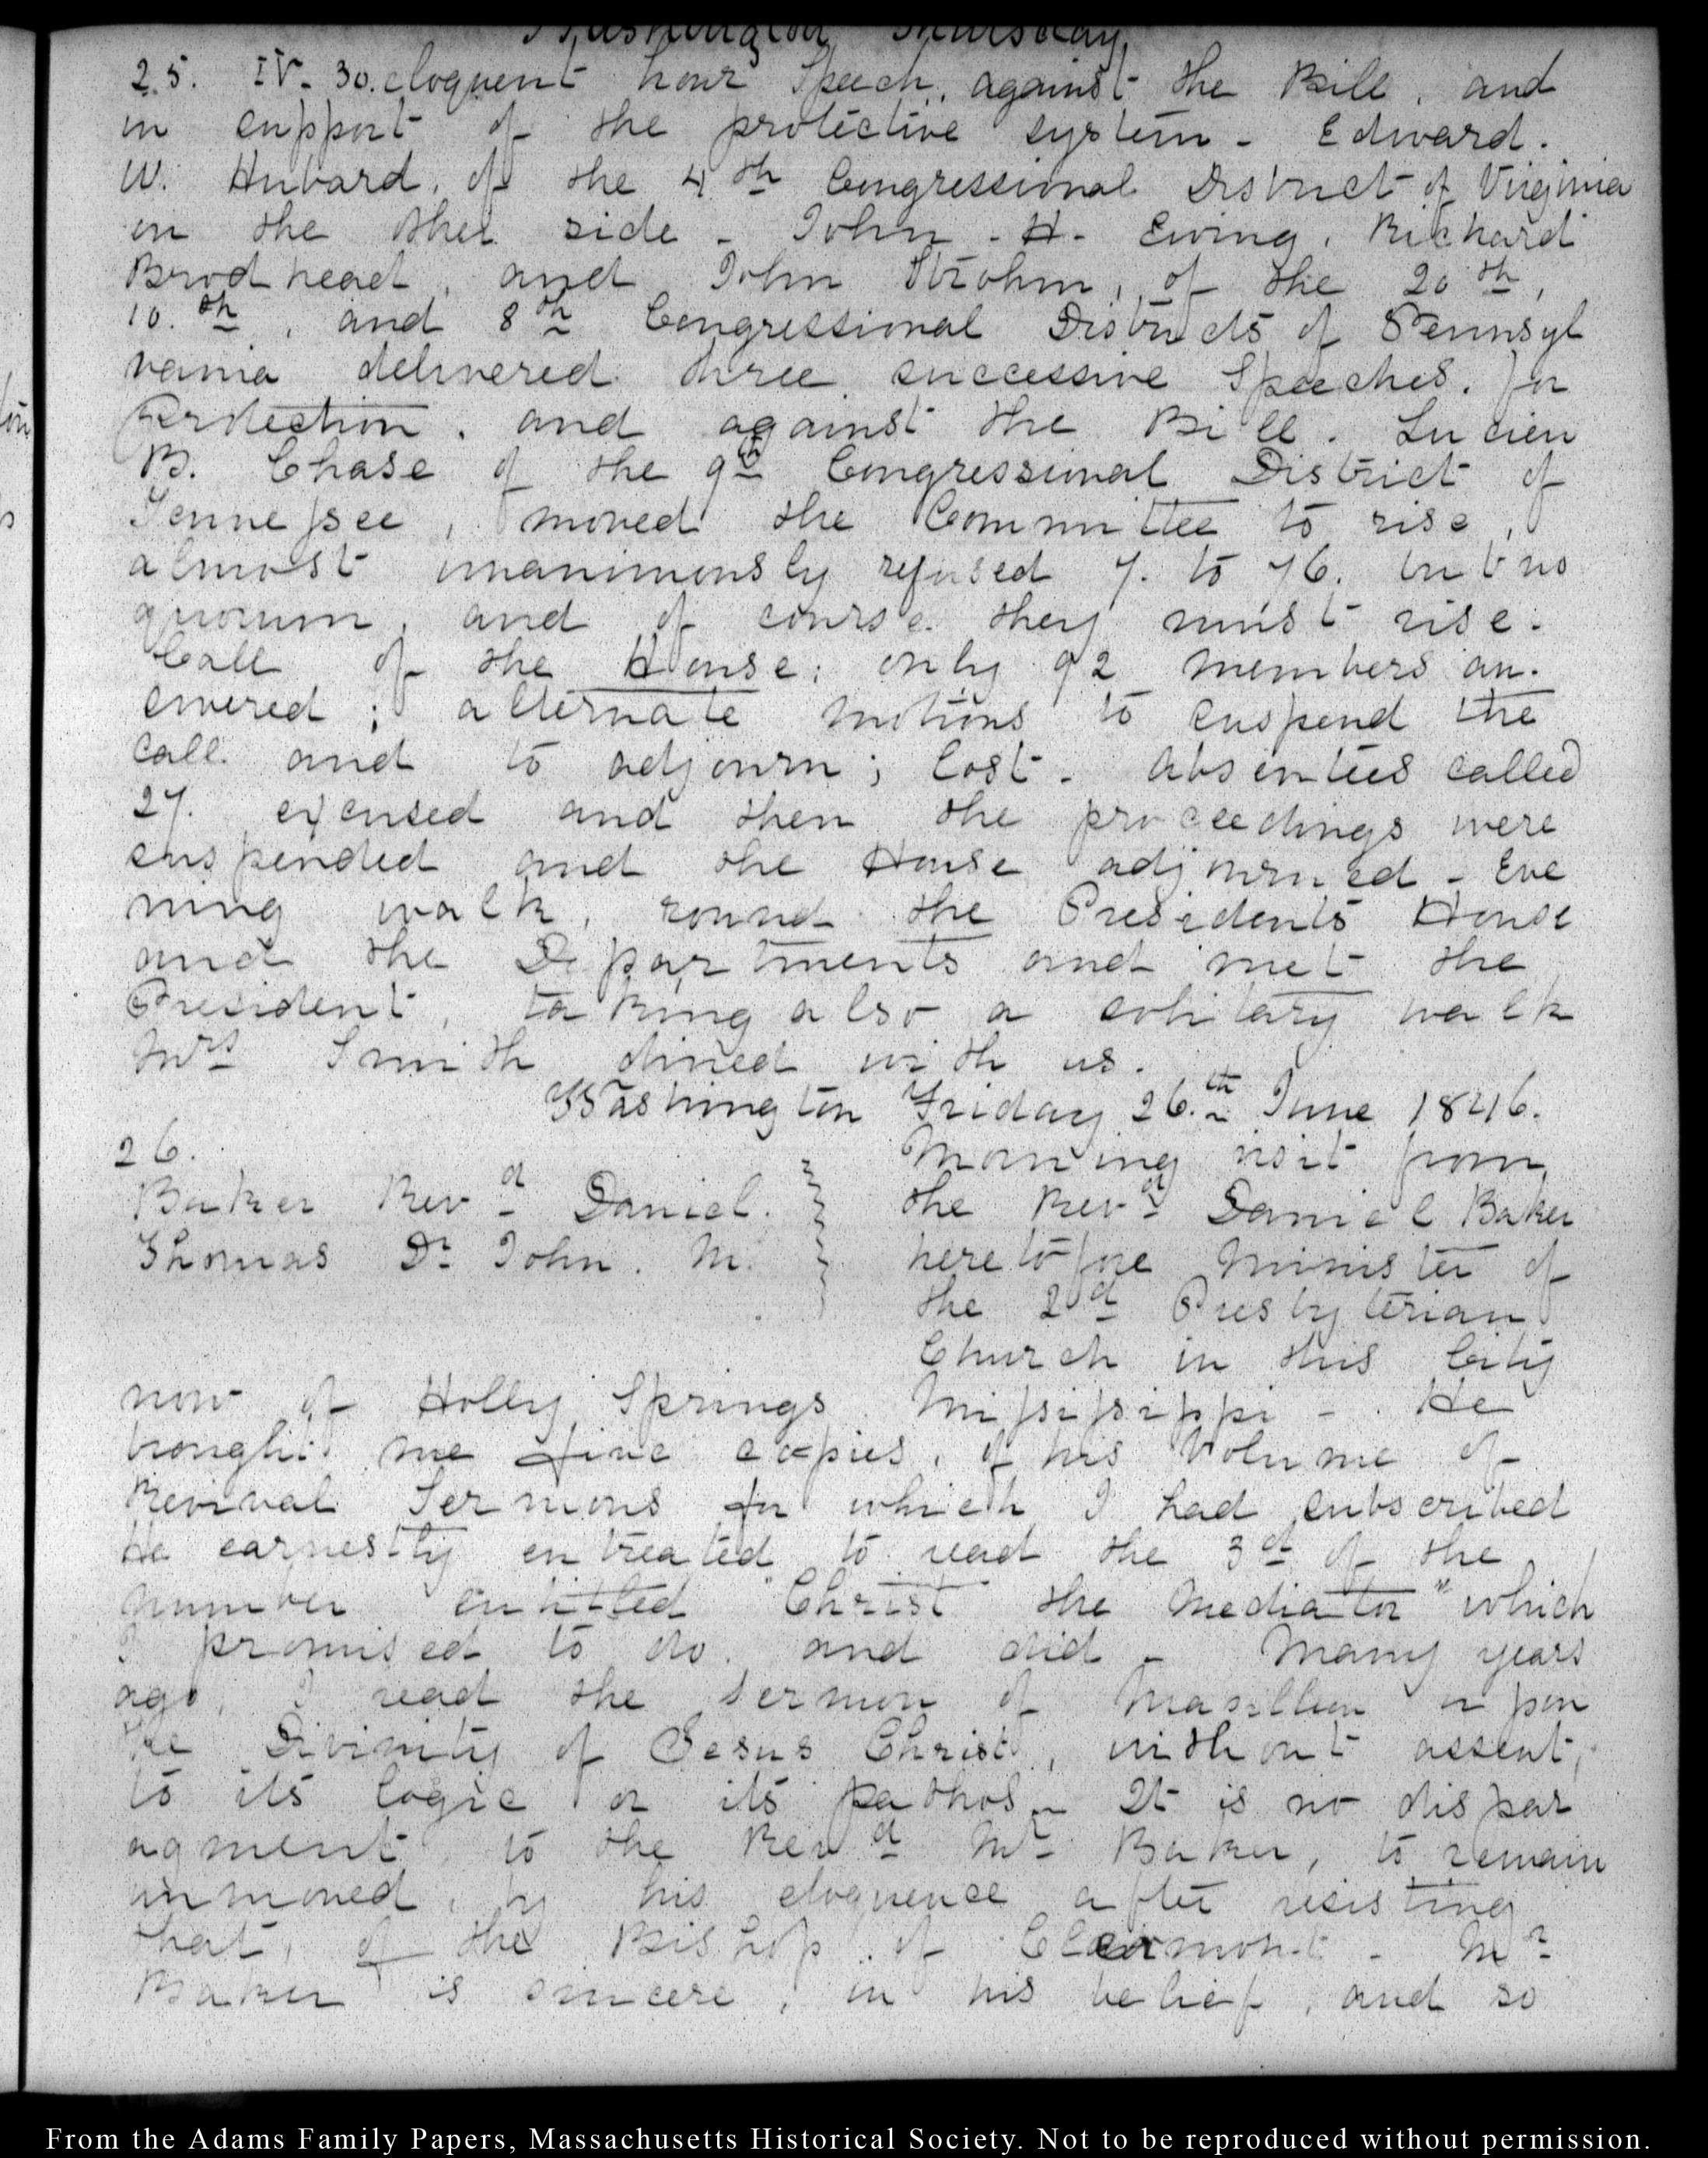 Washington Thursday
25. IV. 30. eloquent hour Speech, against the Bill, and
in support of the protective system - Edward.
W. Hubard, of the 4th Congressional District of Virginia
on the other side - John - H - Ewing, Richard
Brodhead, and John Strohm, of the 20th,
10.th, and 8th Congressional Districts of Pennsyl
vania delivered three successive Speeches, for
Protection, and against the Bill. Lucien
B. Chase of the 9th Congressional District of
Tennessee, moved the Committee to rise,
almost unanimously refused 7. to 76. but no
quorum, and of course they must rise.
Call of the House; only 92 members an-
swered; alternate motions to suspend the
call and to adjourn; lost - Absentees called
27. excused and then the proceedings were
suspended and the House adjourned - Eve
ning walk, round the Presidents House
and the Departments and met the
President, taking also a solitary walk
Mrs Smith dined with us.
Washington Friday 26.th June 1846.
26.
Morning visit from
Baker Revd Daniel.
the Revd Daniel Baker
Thomas Dr John. M.
heretofore Minister of
the 2d Presbyterian
Church in this City
now of Holly Springs Mississippi - He
brought me five copies, of his Volume of
Revival Sermons for which I had subscribed
He earnestly entreated to read the 3d of the
number entitled "Christ the Mediator" which
I promised to do. and did - Many years
ago, I read the Sermon of Masillon upon
the Divinity of Jesus Christ, without assent,
to its logic or its pathos - It is no dispar
agment to the Revd Mr Baker, to remain
unmoved, by his eloquence after resisting
that, of the Bishop of Clermont - Mr
Baker is sincere, in his belief, and so
From the Adams Family Papers, Massachusetts Historical Society. Not to be reproduced without permission.